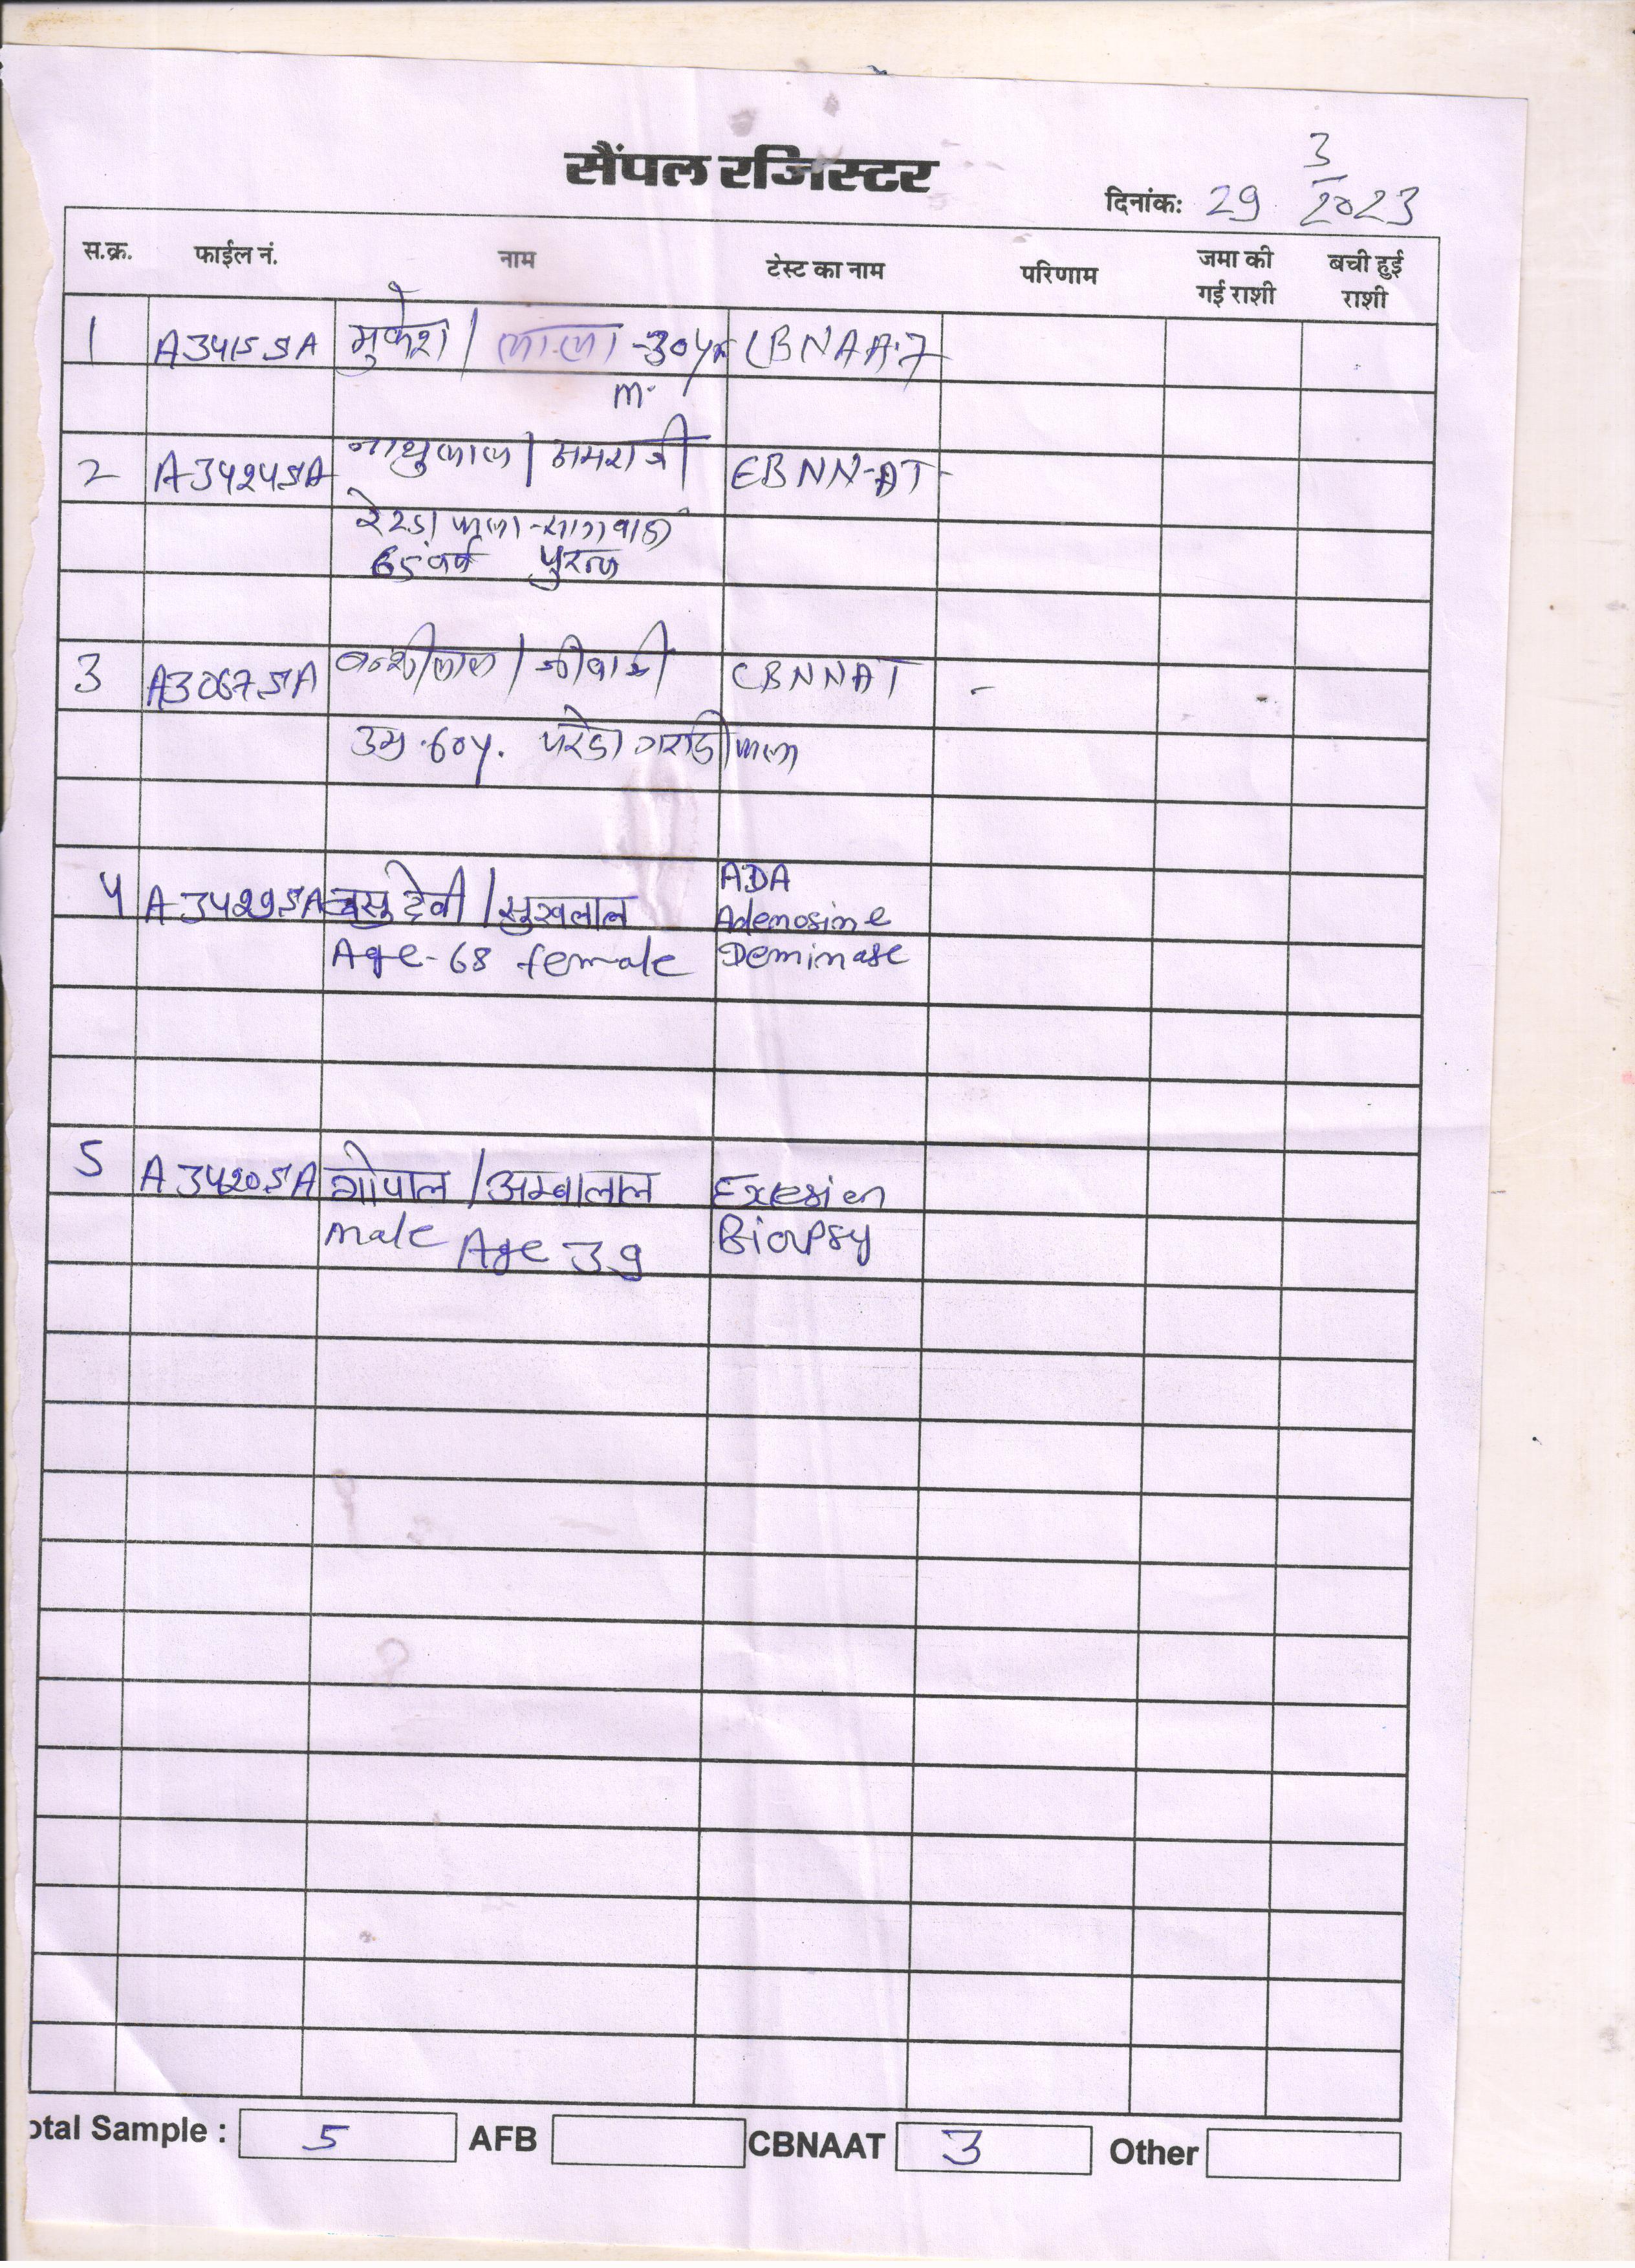 सैंपल रजिस्टर
दिनांक: 29 3/2023
स.क्र. फाईल नं. नाम टेस्ट का नाम परिणाम जमा की गई राशी बची हुई राशी
1 A3415SA मुकेश / लाला -30yr CBNAAT
m.
2 A3424SA नाथुलाल / अमराजी EBNN-AT
65 वर्ष पुरुष
3 A3067SA CBNNAT -
उम्र-60y.
4 A3429SA देवी / सुखलाल ADA
Adenosine
Age-68 female Deminase
5 A3420SA गोपाल / अम्बालाल Exesion
male Age 39 Biopsy
otal Sample : 5 AFB CBNAAT 3 Other